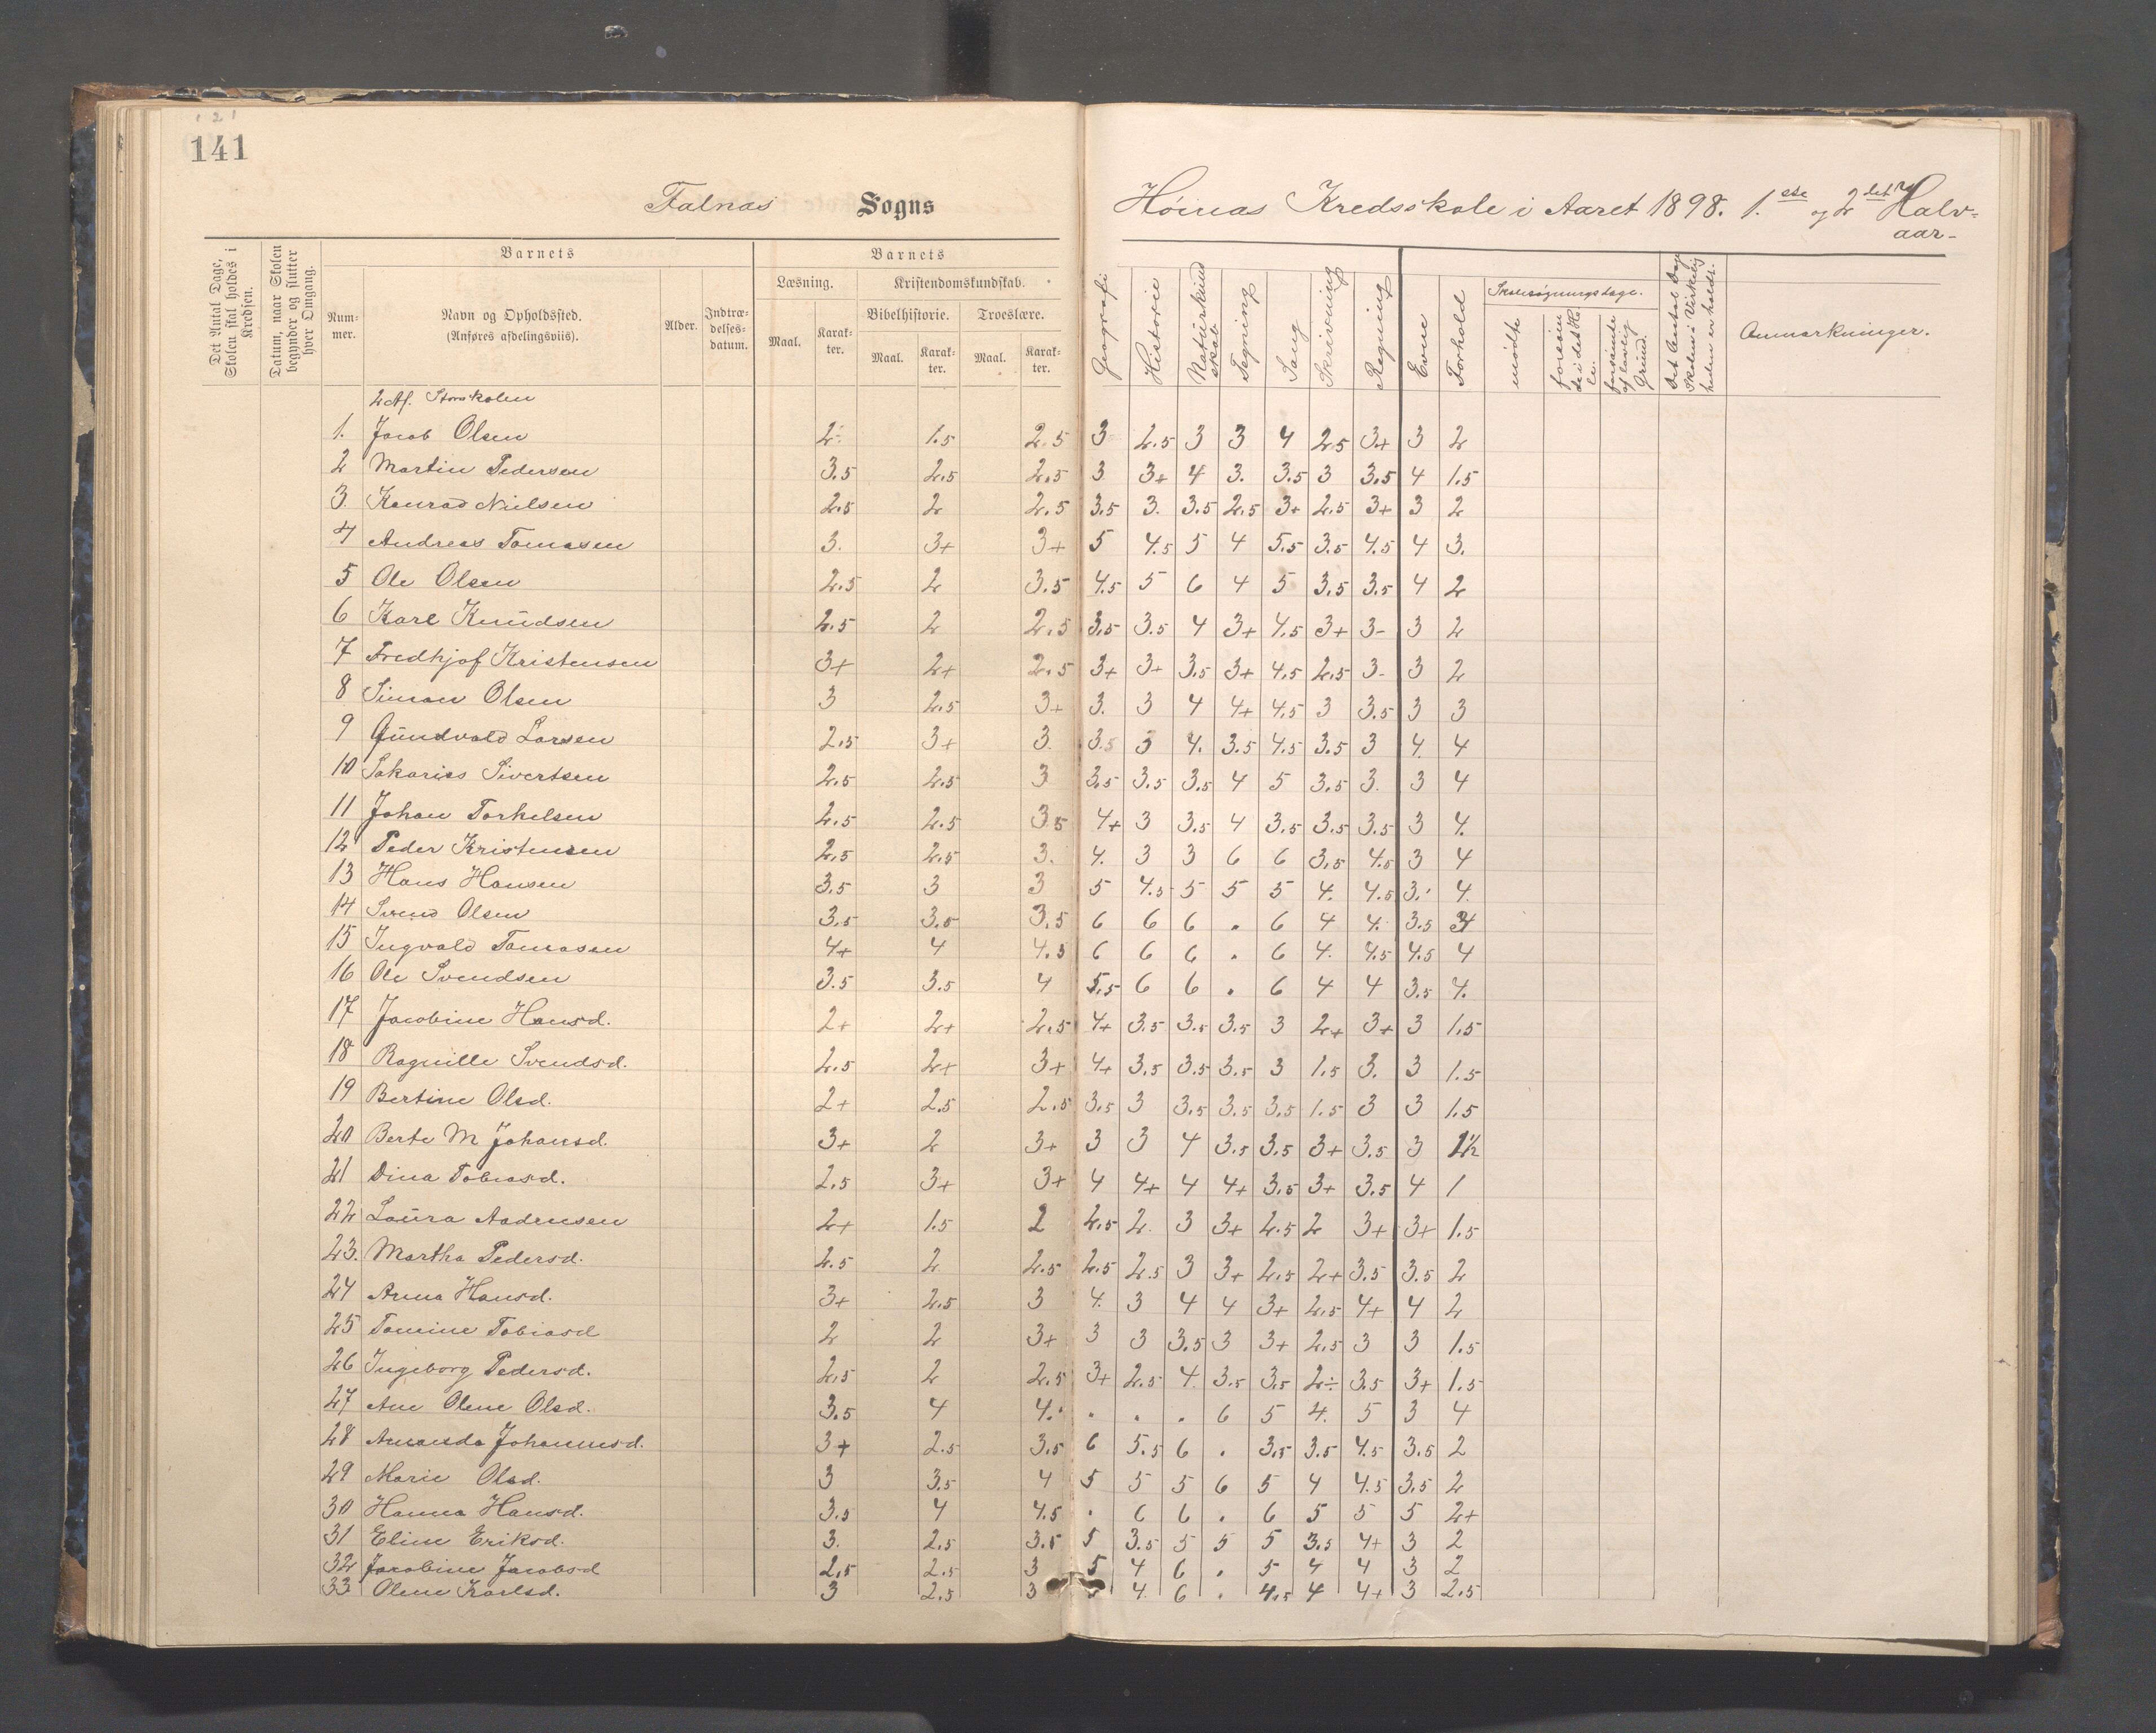 121
141
Falnæs Sogns
Høinæs Kredsskole i Aaret 1898. 1.ste og 2det Halv=
aar-
Det Antal Dage, Skolen skal holdes i Kredsen.
Datum, naar Skolen begynder og slutter hver Omgang.
Barnets
Barnets
Num-
mer.
Navn og Opholdssted.
(Anføres afdelingsviis).
Alder.
Indtræ-
delses-
datum.
Læsning.
Kristendomskundskab.
Bibelhistorie.
Troeslære.
Maal.
Karak-
ter.
Maal.
Karak-
ter.
Maal.
Karak-
ter.
Geografi
Historie
Naturkund
skab
Tegning
Sang
Skrivning
Regning
Evne
Forhold
Skolesøgningsdage.
mødte
forsøm
te i det He-
le.
forsømte
af lovlig
Grund.
Det Antal Dage
Skolen i Virkelig
heden er holdt.
Anmærkninger.
2 Af. Storskolen
1. Jacob Olsen 2 1.5 2.5 3 2.5 3 3 4 2.5 3+ 3 2
2 Martin Pedersen 3.5 2.5 2.5 3 3+ 4 3. 3.5 3 3.5 4 1.5
3. Konrad Nielsen 2.5 2 2.5 3.5 3. 3.5 2.5 3+ 2.5 3+ 3 2
4 Andreas Tomasen 3. 3+ 3+ 5 4.5 5 4 5.5 3.5 4.5 4 3.
5 Ole Olsen 2.5 2 3.5 4.5 5 6 4 5 3.5 3.5 4 2
6 Karl Knudsen 2.5 2 2.5 3.5 3.5 4 3+ 4.5 3+ 3- 3 2
7 Fredhjof Kristensen 3+ 2+ 2.5 3+ 3+ 3.5 3+ 4.5 2.5 3- 3 2
8 Simon Olsen 3 2.5 3+ 3. 3 4 4+ 4.5 3 3.5 3 3
9 Gundvald Larsen 2.5 3+ 3. 3.5 3 4. 3.5 4.5 3.5 3 4. 4
10 Sakarias Sivertsen 2.5 2.5 3 3.5 3.5 3.5 4 5 3.5 3. 3 4
11 Johan Torkelsen 2.5 2.5 3.5 4+ 3 3.5 4 3.5 3.5 3.5 3 4.
12 Peder Kristensen 2.5 2.5 3. 4. 3 3 6 6 3.5 4.5 3 4
13 Hans Hansen 3.5 3 3 5 4.5 5 5 5 4. 4.5 3. 4.
14 Svend Olsen 3.5 3.5 3.5 6 6 6 . 6 4 4. 3.5 4
15 Ingvald Tomasen 4+ 4 4.5 6 6 6 . 6 4. 4.5 4.5 4
16 Ole Svendsen 3.5 3.5 4 5.5 6 6 . 6 4 4 3.5 4.
17 Jacobine Hansd. 2+ 2+ 2.5 4+ 3.5 3.5 3.5 3 2+ 3+ 3 1.5
18 Ragnille Svendsd. 2.5 2+ 3+ 4+ 3.5 3.5 3.5 3 1.5 3. 3 1.5
19 Bertine Olsd. 2+ 2.5 2.5 3.5 3 3.5 3.5 3.5 1.5 3 3 1.5
20 Berte M Johansd. 3+ 2 3+ 3 3 4 3.5 3.5 3+ 3.5 3 1½
21 Dina Tobiasd. 2.5 3+ 3+ 4 4+ 4 4+ 3.5 3+ 3.5 4 1
22 Laura Aadensen 2+ 1.5 2 2.5 2. 3 3+ 2.5 2 3+ 3+ 1.5
23. Martha Pedersd. 2.5 2 2.5 2.5 2.5 3 3+ 2.5 2+ 3.5 3.5 2
24 Anna Hansd. 3+ 2.5 3 4. 3 4 4 3+ 2.5 4+ 4 2
25 Tomine Tobiasd 2 2 3+ 3 3 3.5 3 3+ 2.5 3 3 1.5
26 Ingeborg Pedersd. 2.5 2 2.5 3+ 2.5 4 3.5 3.5 2÷ 3.5 3+ 1.5
27 Ane Olene Olsd. 3.5 4 4. . . . 6 5 4. 5 3 4
28 Amanda Johannesd. 3+ 2.5 3.5 6 5.5 6 . 3.5 3.5 4.5 3.5 2
29 Marie Olsd. 3 3.5 4 5 5 5 6 5 4 4.5 3.5 2
30 Hanna Hansd. 3.5 4 4.5 . 6 6 . 6 5 5 5 2+
31 Eline Eriksd. 3. 2.5 3.5 5 3.5 5 5 5 3.5 4+ 3 2
32 Jacobine Jacobsd 2.5 2.5 3 5 4 6 . 5 4 4 3 2
33 Olene Karlsd. 3 2.5 3 4 6 . 4.5 4 4+ 3 2.5